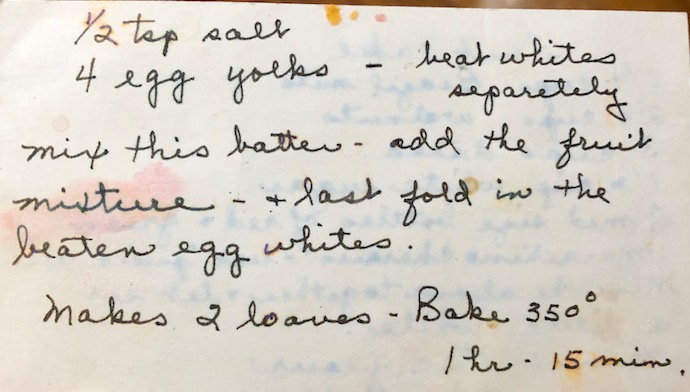 1/2 tsp salt
4 egg yolks - beat whites
separetely
mix this batter - add the fruit
misture - + last fold in the
beaten egg whites.
Makes 2 loaves - Bake 350°
1 hr - 15 min.